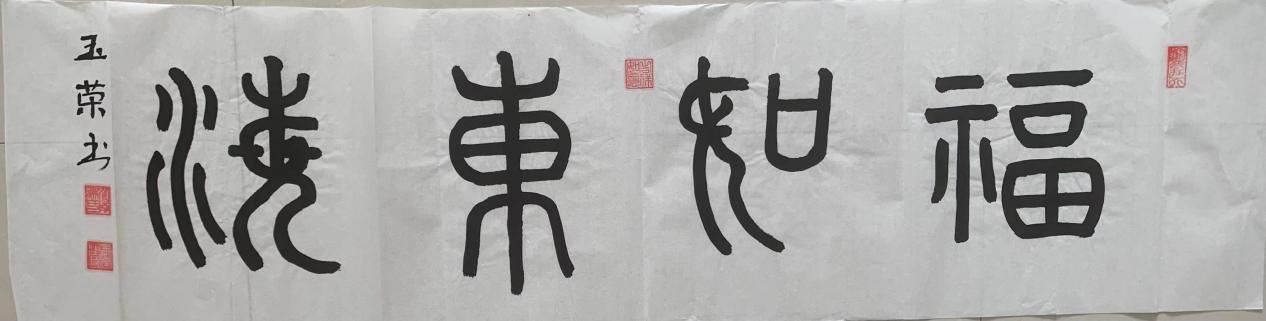 福如東海
玉荣书